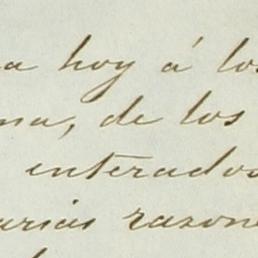 a hoy á los
ma, de los
enterados
arias razone